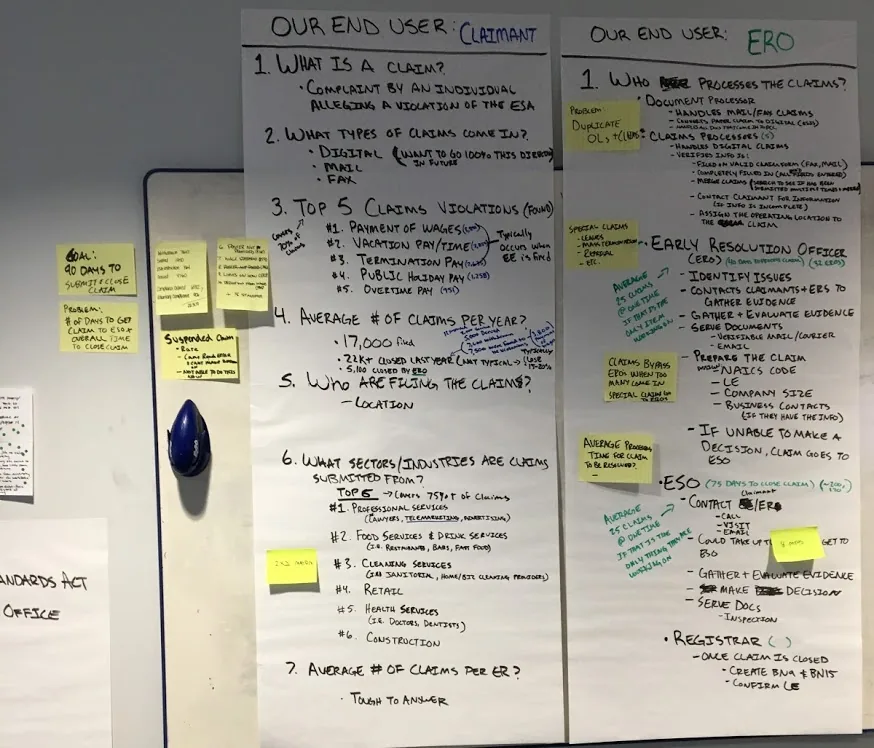 OUR END USER: CLAIMANT
1. WHAT IS A CLAIM?
· COMPLAINT BY AN INDIVIDUAL
ALLEGING A VIOLATION OF THE ESA
2. WHAT TYPES OF CLAIMS COME IN?
· DIGITAL (WANT TO GO 100% THIS DIRECTION
IN FUTURE)
· MAIL
· FAX
3. TOP 5 CLAIMS VIOLATIONS (FOUND)
COVERS
70% OF
CLAIMS
#1. PAYMENT OF WAGES
#2. VACATION PAY/TIME
#3. TERMINATION PAY
#4. PUBLIC HOLIDAY PAY (1,258)
#5. OVERTIME PAY (951)
TYPICALLY
OCCURS WHEN
EE IS FIRED
4. AVERAGE # OF CLAIMS PER YEAR?
· 17,000 filed
· 22K+ CLOSED LAST YEAR (NOT TYPICAL)
· 5,100 CLOSED BY ERO
TYPICALLY
CLOSE
15-20%
5. WHO ARE FILING THE CLAIMS?
- LOCATION
6. WHAT SECTORS/INDUSTRIES ARE CLAIMS
SUBMITTED FROM?
TOP 6 → COVERS 75% OF CLAIMS
#1. PROFESSIONAL SERVICES
(LAWYERS, TELEMARKETING, ADVERTISING)
#2. FOOD SERVICES & DRINK SERVICES
(I.E. RESTAURANTS, BARS, FAST FOOD)
#3. CLEANING SERVICES
JANITORIAL, HOME/BIZ CLEANING PROVIDERS)
#4. RETAIL
#5. HEALTH SERVICES
(I.E. DOCTORS, DENTISTS)
#6. CONSTRUCTION
7. AVERAGE # OF CLAIMS PER ER?
· TOUGH TO ANSWER
OUR END USER: ERO
1. WHO PROCESSES THE CLAIMS?
· DOCUMENT PROCESSOR
- HANDLES MAIL/FAX CLAIMS
- CONVERTS PAPER CLAIM TO DIGITAL
· CLAIMS PROCESSORS
- HANDLES DIGITAL CLAIMS
- VERIFIES INFO IS:
- FILED ON VALID CLAIM FORM (FAX, MAIL)
- COMPLETELY FILLED IN (ALL FIELDS ENTERED)
- MERGE CLAIMS (SEARCH TO SEE IF HAS BEEN
SUBMITTED MULTIPLE TIMES
- CONTACT CLAIMANT FOR INFORMATION
(IF INFO IS INCOMPLETE)
- ASSIGN THE OPERATING LOCATION TO
THE CLAIM
· EARLY RESOLUTION OFFICER
(ERO)
- IDENTIFY ISSUES
- CONTACTS CLAIMANTS + ERS TO
GATHER EVIDENCE
- GATHER + EVALUATE EVIDENCE
- SERVE DOCUMENTS
- VERIFIABLE MAIL/COURIER
- EMAIL
- PREPARE THE CLAIM
- NAICS CODE
- LE
- COMPANY SIZE
- BUSINESS CONTACTS
(IF THEY HAVE THE INFO)
- IF UNABLE TO MAKE A
DECISION, CLAIM GOES TO
ESO
AVERAGE
25 CLAIMS
@ ONE TIME
IF THAT IS THE
ONLY ITEM
WORKING ON
· ESO (75 DAYS TO CLOSE CLAIM)
Claimant
- CONTACT /ER
- CALL
- VISIT
- EMAIL
- COULD TAKE UP TO GET TO
ESO
- GATHER + EVALUATE EVIDENCE
- MAKE DECISION
- SERVE DOCS
- INSPECTION
AVERAGE
25 CLAIMS
@ ONE TIME
IF THAT IS THE
ONLY THING THEY ARE
WORKING ON
· REGISTRAR ( )
- ONCE CLAIM IS CLOSED
· CREATE BN9 & BN15
- CONFIRM LE
PROBLEM:
DUPLICATE
SPECIAL CLAIMS
- LEAVES
- MASS TERMINATION
- REPRISAL
- ETC.
CLAIMS BYPASS
EROS WHEN TOO
MANY COME IN
AVERAGE PROCESSING
TIME FOR CLAIM
TO BE RESOLVED?
GOAL:
90 DAYS TO
SUBMIT & CLOSE
CLAIM
PROBLEM:
# OF DAYS TO GET
CLAIM TO ESO +
OVERALL TIME
TO CLOSE CLAIM
Suspended Claim
- RARE
NDARDS ACT
OFFICE